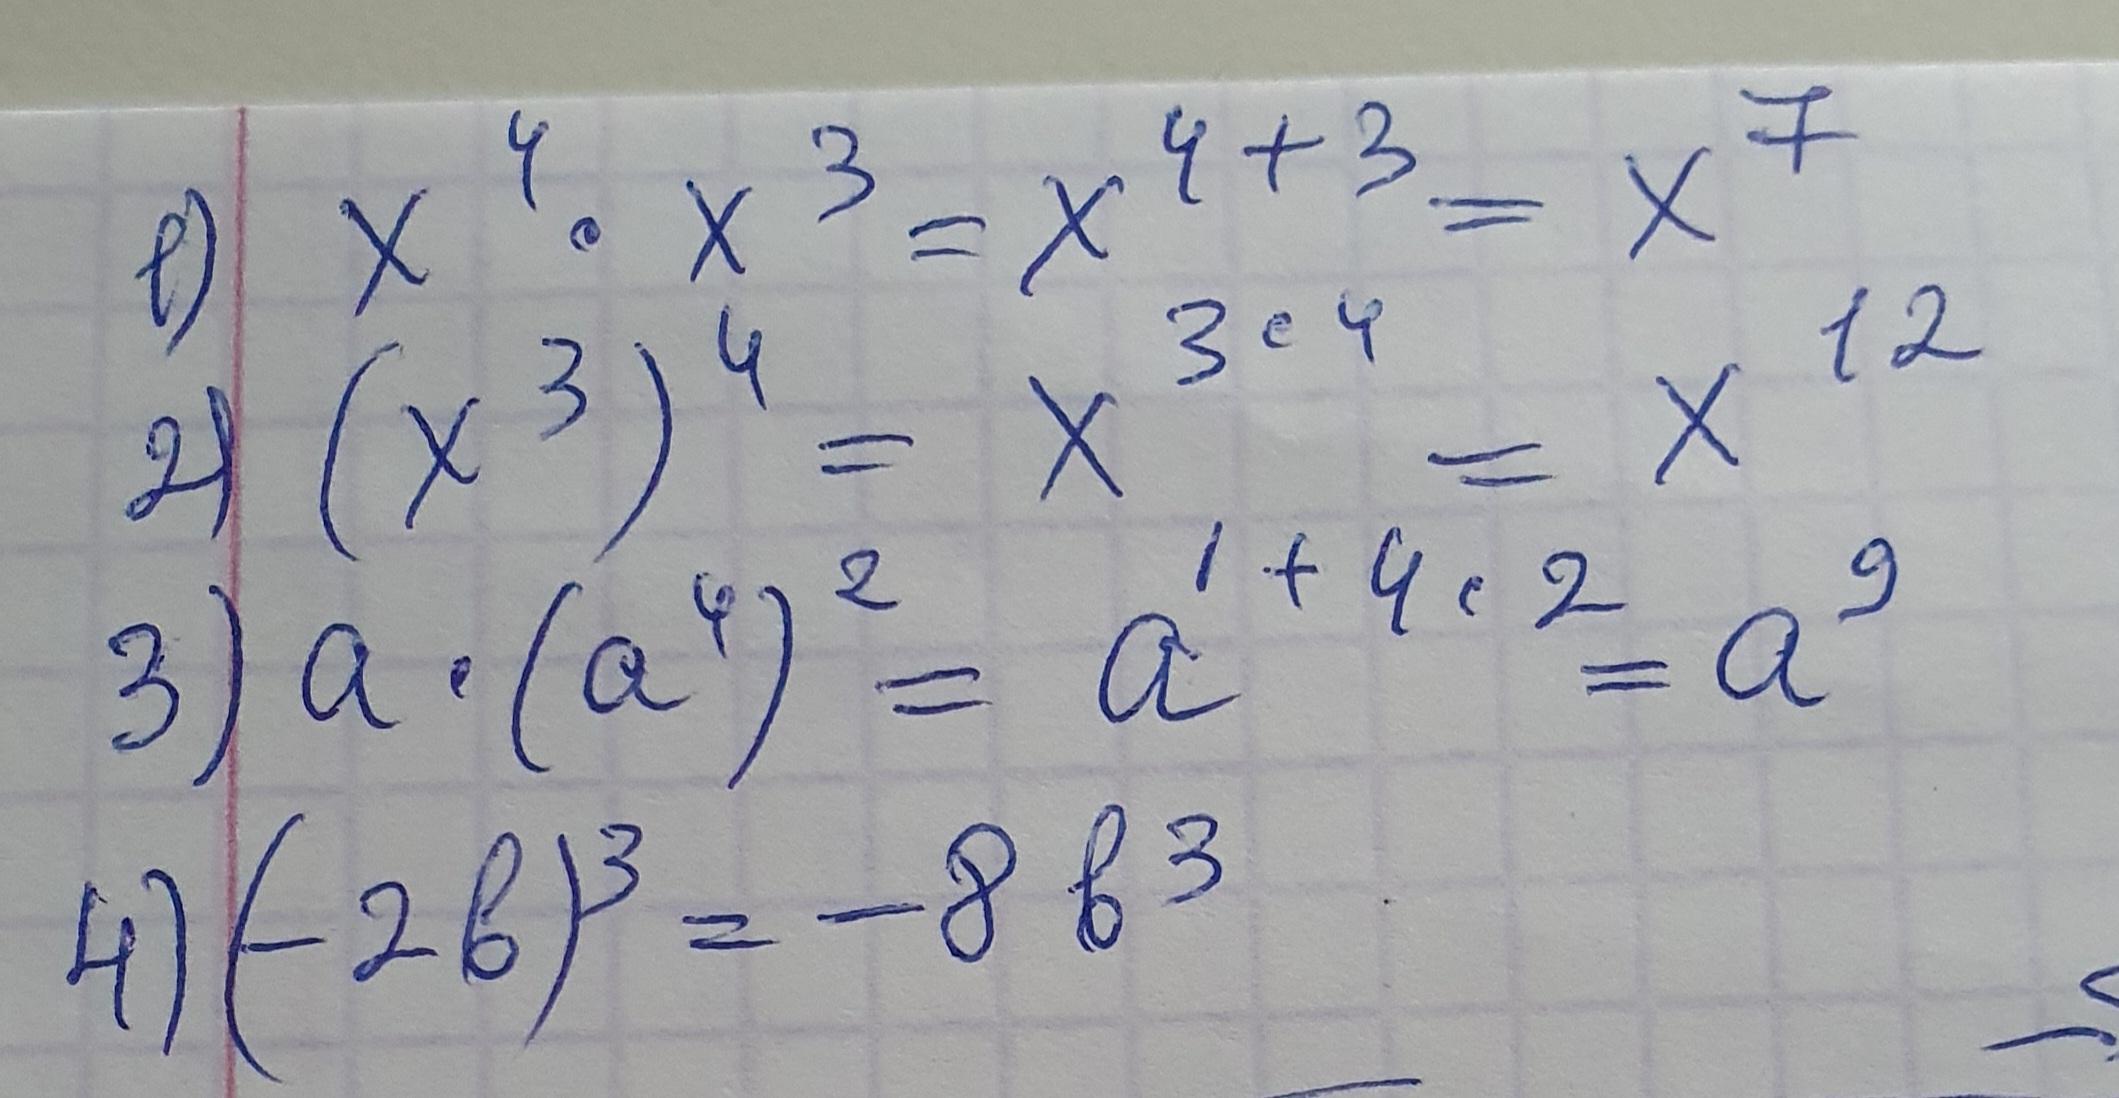 1) x⁴ · x³ = x⁴⁺³ = x⁷
2) (x³)⁴ = x³·⁴ = x¹²
3) a · (a⁴)² = a¹⁺⁴·² = a⁹
4) (-2b)³ = -8b³